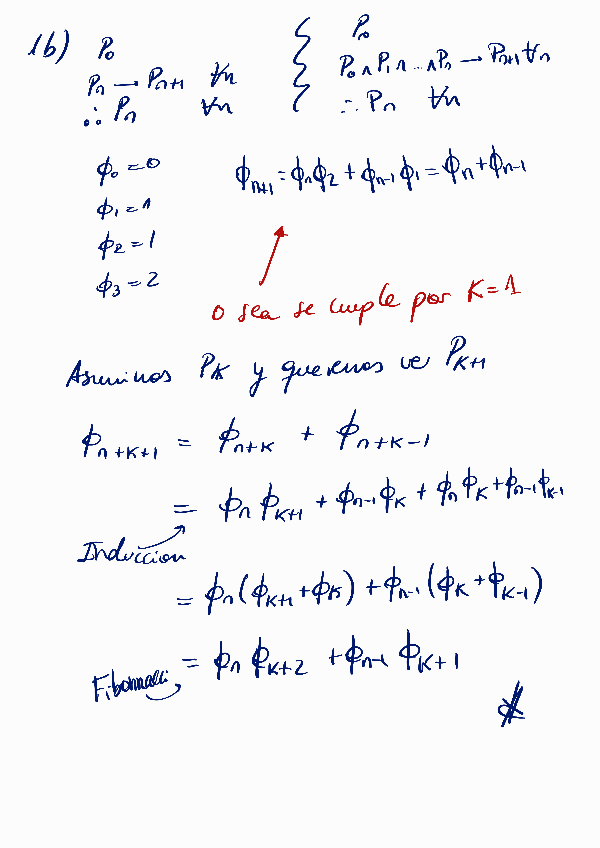 1b) P₀
Pₙ → Pₙ₊₁ ∀n
∴ Pₙ ∀n
P₀
P₀ ∧ P₁ ∧ ... ∧ Pₙ → Pₙ₊₁ ∀n
∴ Pₙ ∀n
ϕ₀ = 0
ϕ₁ = 1
ϕ₂ = 1
ϕ₃ = 2
ϕₙ₊₁ = ϕₙϕ₂ + ϕₙ₋₁ϕ₁ = ϕₙ + ϕₙ₋₁
o sea se cumple por K = 1
Asumimos P_K y queremos ver P_{K+1}
ϕ_{n+K+1} = ϕ_{n+K} + ϕ_{n+K-1}
= ϕₙ ϕ_{K+1} + ϕₙ₋₁ ϕ_K + ϕₙ ϕ_K + ϕₙ₋₁ ϕ_{K-1}
Induccion
= ϕₙ (ϕ_{K+1} + ϕ_K) + ϕₙ₋₁ (ϕ_K + ϕ_{K-1})
Fibonnacci = ϕₙ ϕ_{K+2} + ϕₙ₋₁ ϕ_{K+1}